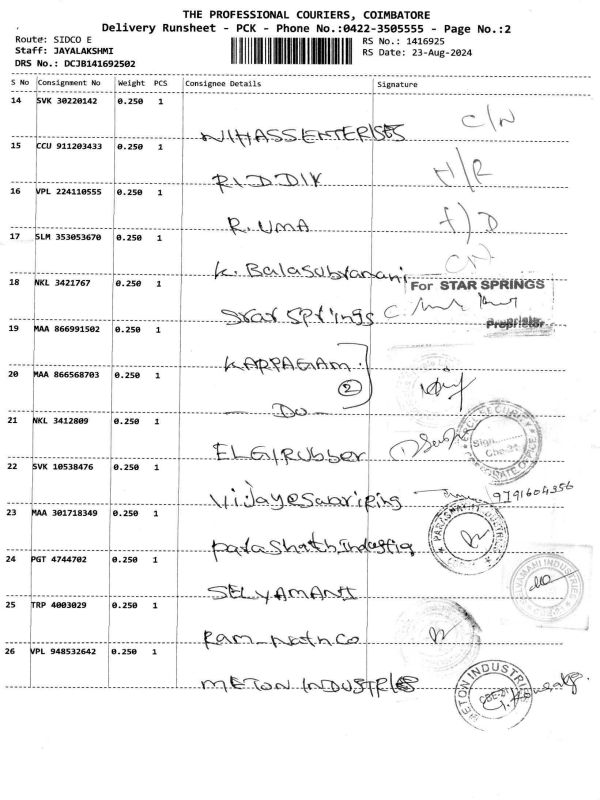 THE PROFESSIONAL COURIERS, COIMBATORE
Delivery Runsheet - PCK - Phone No.:0422-3505555 - Page No.:2
Route: SIDCO E
RS No.: 1416925
Staff: JAYALAKSHMI
RS Date: 23-Aug-2024
DRS No.: DCJB141692502
S No Consignment No Weight PCS Consignee Details Signature
14 SVK 30220142 0.250 1
NIHASS ENTERPRISES C/N
15 CCU 911203433 0.250 1
RIDDIK N/R
16 VPL 224110555 0.250 1
R. UMA
17 SLM 353053670 0.250 1
K. Balasubramani CN
18 NKL 3421767 0.250 1
For STAR SPRINGS
Star Springs
Proprietor
19 MAA 866991502 0.250 1
KARPAGAM
20 MAA 866568703 0.250 1
2
- Do -
21 NKL 3412809 0.250 1
ELGI Rubber
22 SVK 10538476 0.250 1
9791604356
23 MAA 301718349 0.250 1
24 PGT 4744702 0.250 1
SELVAMANI
25 TRP 4003029 0.250 1
Ram Nath Co
26 VPL 948532642 0.250 1
METON INDUSTRIES
METON INDUSTRIES
CBE-21